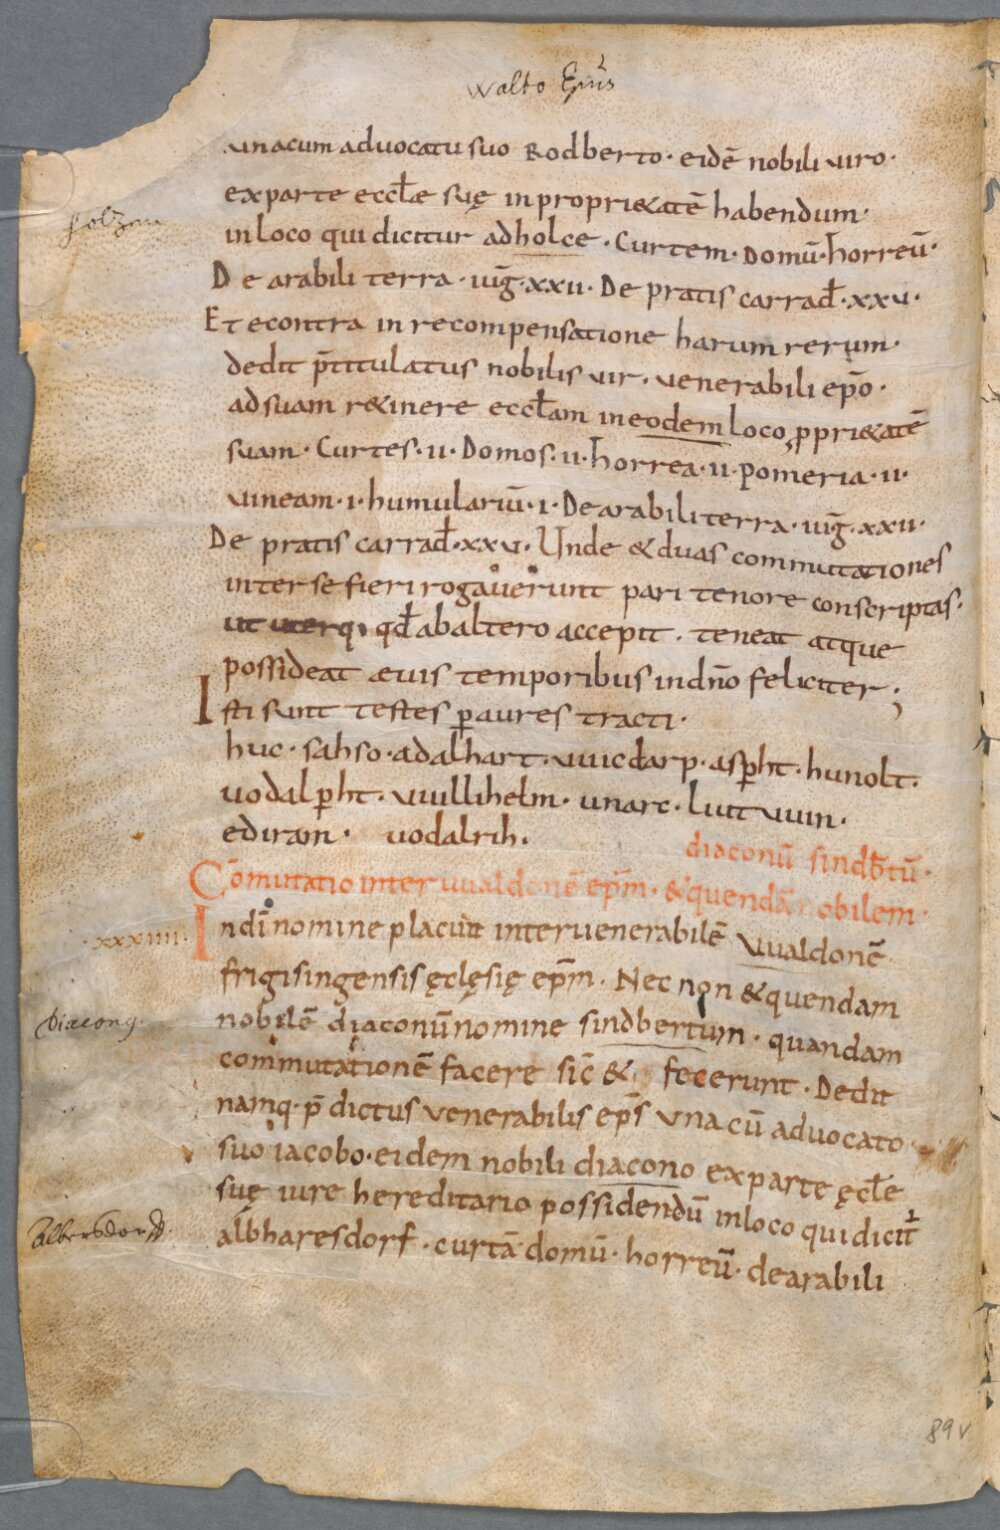 Walto Ep̄us
unacum advocatu suo Rodberto· eidē nobili viro·
ex parte eccłae suę in propri&atē habendum·
holzen
in loco qui dicitur adholce · Curtem· Domū· horreū·
De arabili terra · iuḡ·xxii· De pratis carrađ·xxv·
Et econtra in recompensatione harum rerum·
dedit p̄titulatus nobilis vir· venerabili ep̄o·
ad suam r&inere eccłam in eodem loco ꝓpri&atē
suam· Curtes·ii· Domos·ii· horrea·ii· pomeria·ii·
vineam·i· humulariū·i· De arabili terra· iuḡ·xxii·
De pratis carrađ·xxv· Unde & duas commutationes
inter se fieri rogaverunt pari tenore conscriptas·
ut uterq; qđ ab altero accepit· teneat atque
possideat ævis temporibus in dn̄o feliciter;
Isti sunt testes ꝑ aures tracti·
huc· sahso· adalhart· vvicdarp· asꝑht· hunolt·
uodalꝑht· vvillihelm· unarc· liut vvin·
ediram· uodalrih·
diaconū sindb̄tū·
Cōmutatio inter vvaldonē ep̄m· & quendā nobilem·
·xxxiiii· In dī nomine placuit inter venerabilē vvaldonē
frigisingensis ęclęsię ep̄m· Nec non & quendam
Diaconꝯ
nobilē diaconū nomine sindbertum· quandam
commutationē facere sic̄ & fecerunt· Dedit
namq· p̄dictus venerabilis ep̄s una cū advocato
suo iacobo· eidem nobili diacono ex parte ęcłe
suę iure hereditario possidendū in loco qui dicit̄
Albersdorff·
albharesdorf· curtā· domū· horreū· de arabili
89v